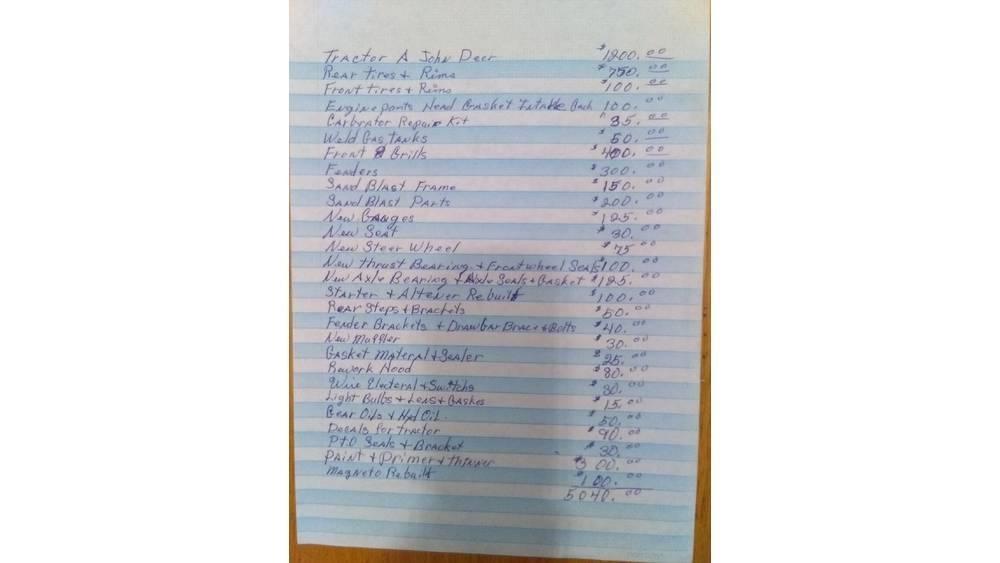 Tractor A John Deer $1200.00
Rear Tires + Rims $750.00
Front Tires + Rims $100.00
Engine parts Head Gasket Intake Gask 100.00
Carbrator Repair Kit $35.00
Weld Gas Tanks $50.00
Front Grills $400.00
Fenders $300.00
Sand Blast Frame $150.00
Sand Blast Parts $200.00
New Gauges $125.00
New Seat $30.00
New Steer Wheel $75.00
New thrust Bearing + Front wheel Seals $100.00
New Axle Bearing + Axle Seals + Gasket $125.00
Starter + Altener Rebuilt $100.00
Rear Steps + Brackets $50.00
Fender Brackets + Drawbar Brace + Bolts $40.00
New Muffler $30.00
Gasket Materal + Sealer $25.00
Rework Hood $80.00
Wire Electeral + Switchs $30.00
Light Bulbs + Lens + Gaskes $15.00
Gear Oils + Hyd Oil. $50.00
Decals for tractor $90.00
PTO Seals + Bracket $30.00
Paint + Primer + thinner $300.00
Magneto Rebuilt $100.00
5040.00